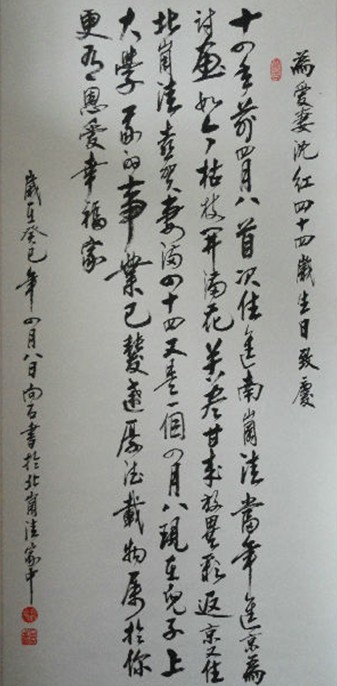 為愛妻沈紅四十四歲生日致慶
十四年前四月八首次住進南崗洼當年進京為
討画如今枯枝開滿花苦盡甘來放異彩返京又住
北崗洼喜賀妻滿四十四又是一個四月八現在兒子上
大學我的事業已發達厚德載物属於你
更有恩愛幸福家
歲在癸巳年四月八日向石書於北崗洼家中